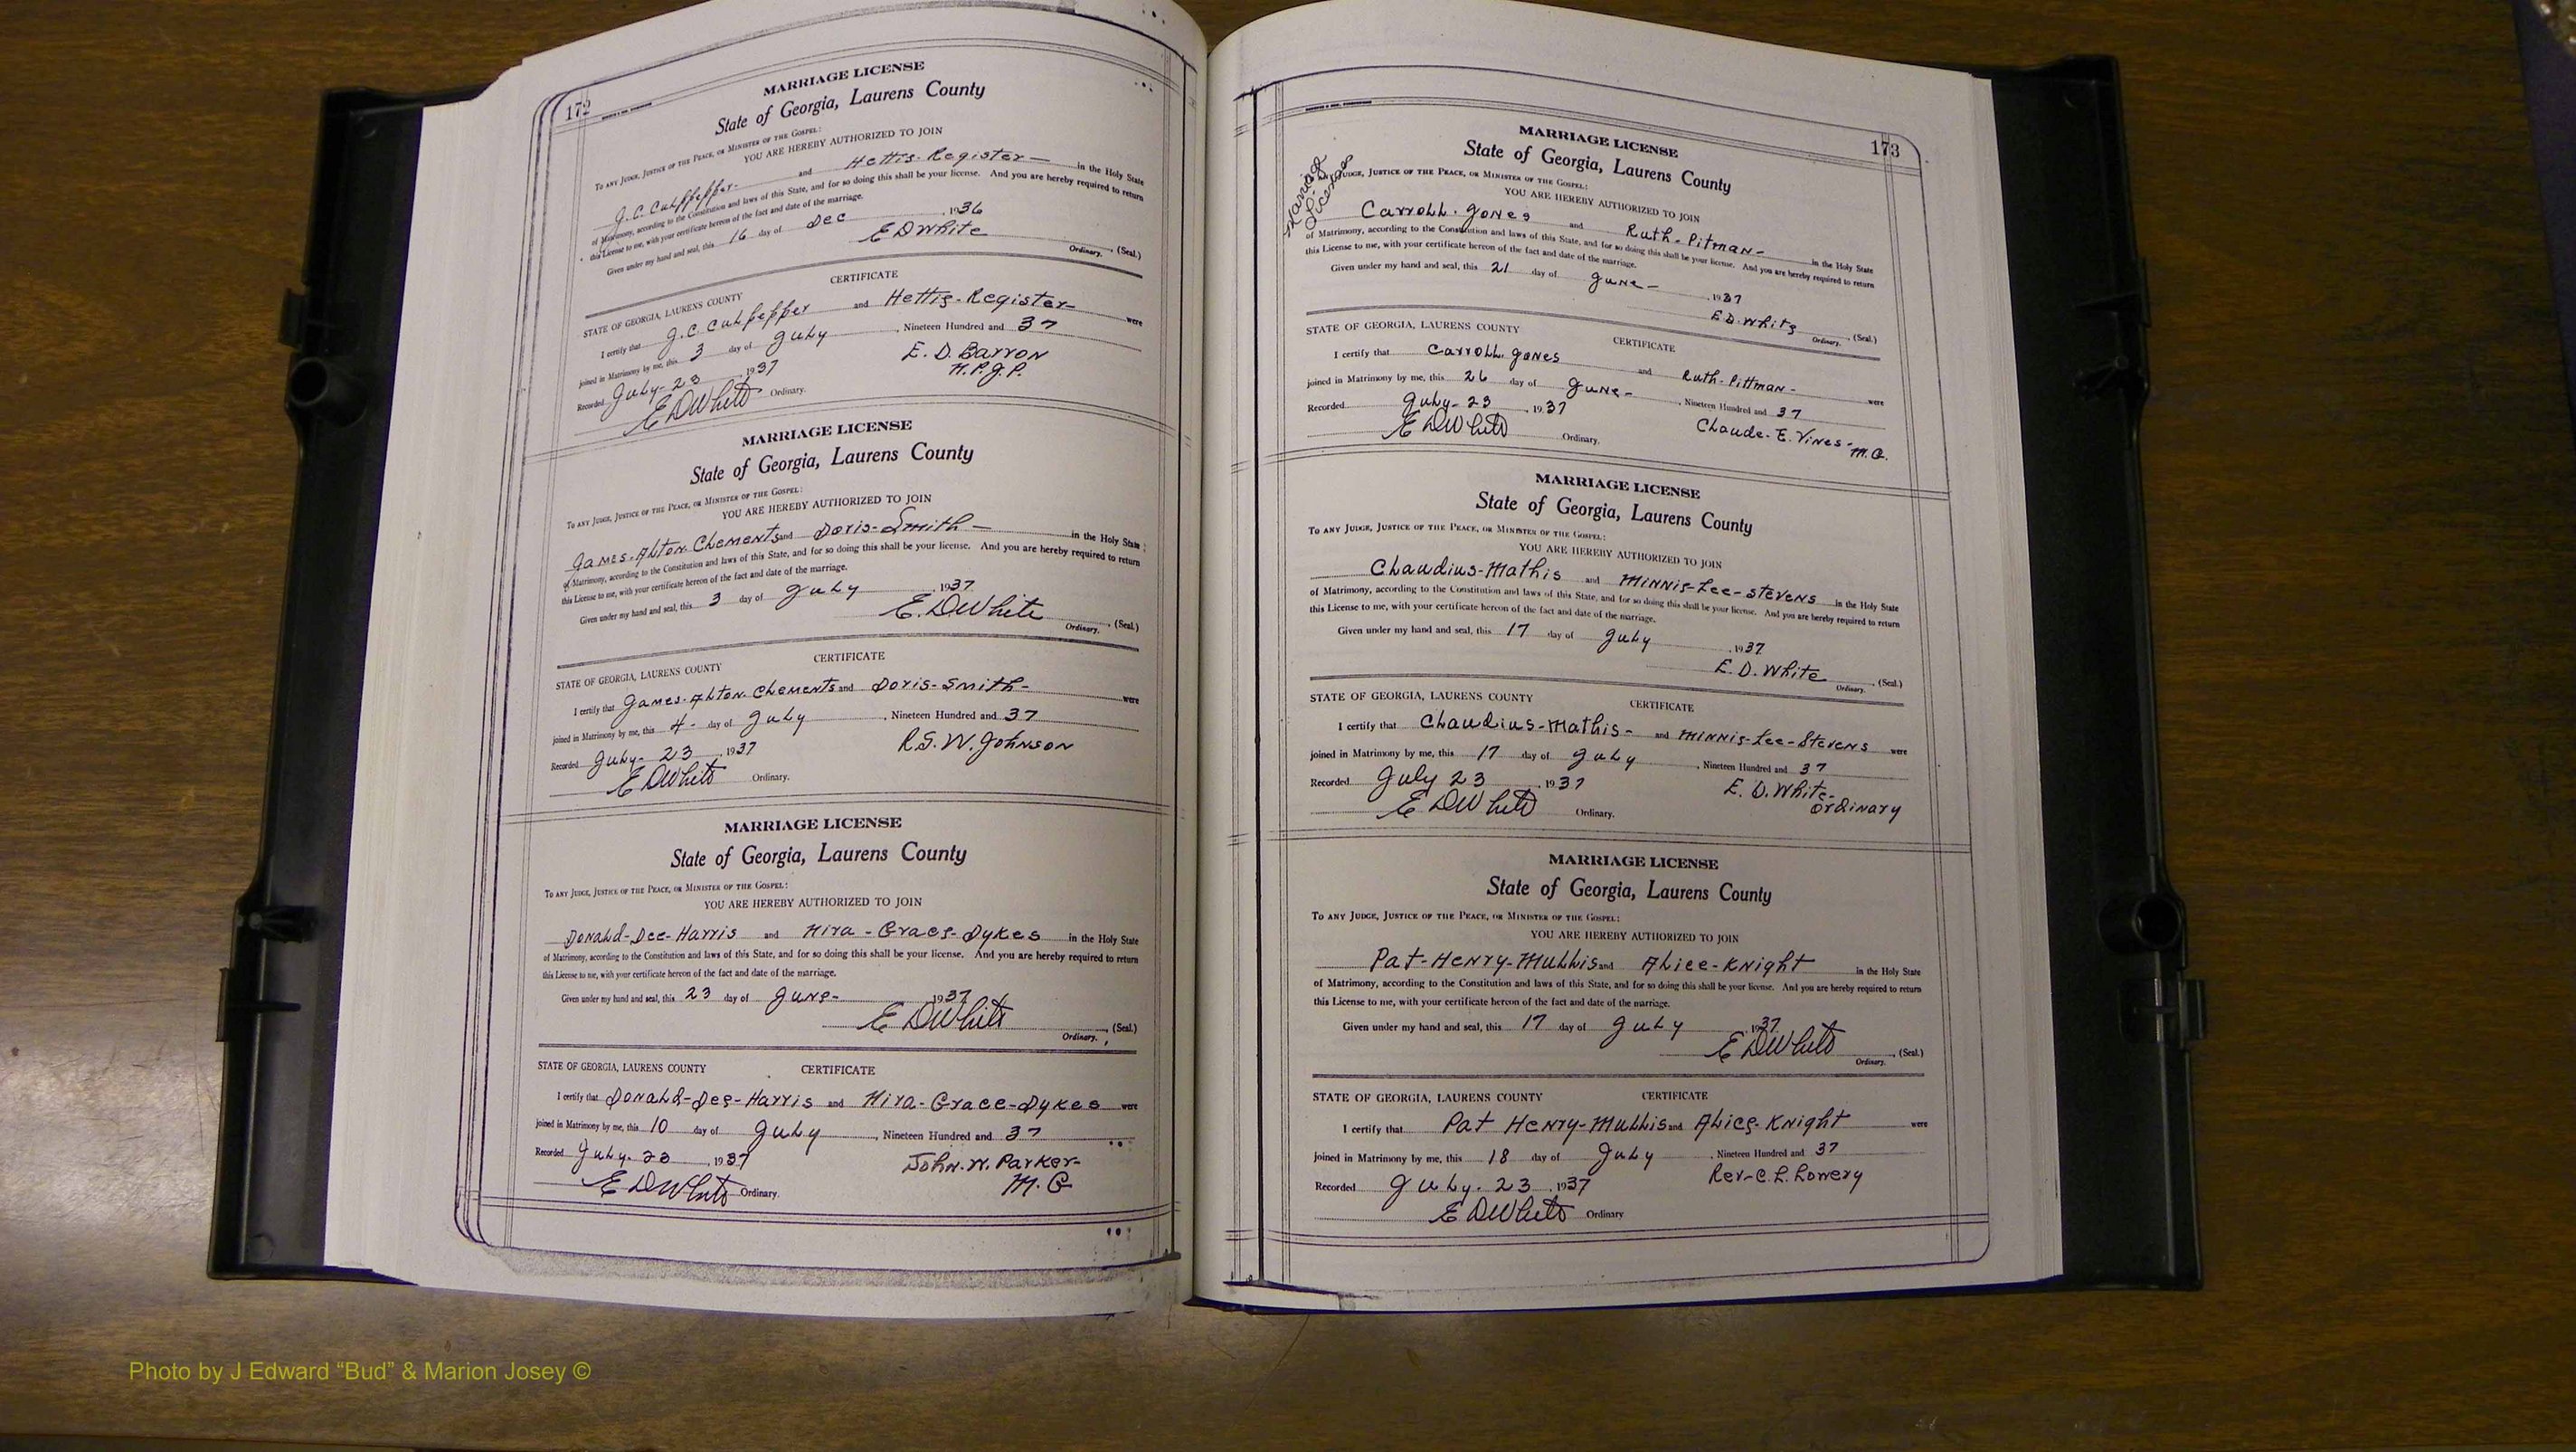 172
MARRIAGE LICENSE
State of Georgia, Laurens County
To any Judge, Justice of the Peace, or Minister of the Gospel:
YOU ARE HEREBY AUTHORIZED TO JOIN
J.C. Culpepper- and Hettie-Register- in the Holy State
of Matrimony, according to the Constitution and laws of this State, and for so doing this shall be your license. And you are hereby required to return
this License to me, with your certificate hereon of the fact and date of the marriage.
Given under my hand and seal, this 16 day of Dec 1936
E D White (Seal.)
Ordinary.
STATE OF GEORGIA, LAURENS COUNTY CERTIFICATE
I certify that J.C. Culpepper and Hettie-Register- were
joined in Matrimony by me, this 3 day of July, Nineteen Hundred and 37
Recorded July-23 1937 E. D. Barron
E D White Ordinary. N.P.J.P.
MARRIAGE LICENSE
State of Georgia, Laurens County
To any Judge, Justice of the Peace, or Minister of the Gospel:
YOU ARE HEREBY AUTHORIZED TO JOIN
James-Alton Clements and Doris-Smith- in the Holy State
of Matrimony, according to the Constitution and laws of this State, and for so doing this shall be your license. And you are hereby required to return
this License to me, with your certificate hereon of the fact and date of the marriage.
Given under my hand and seal, this 3 day of July, 1937
E. D White (Seal.)
Ordinary.
STATE OF GEORGIA, LAURENS COUNTY CERTIFICATE
I certify that James-Alton Clements and Doris-Smith- were
joined in Matrimony by me, this 4- day of July, Nineteen Hundred and 37
Recorded July-23, 1937 R.G.W. Johnson
E D White Ordinary.
MARRIAGE LICENSE
State of Georgia, Laurens County
To any Judge, Justice of the Peace, or Minister of the Gospel:
YOU ARE HEREBY AUTHORIZED TO JOIN
Donald-Dee-Harris and Mira-Grace-Dykes in the Holy State
of Matrimony, according to the Constitution and laws of this State, and for so doing this shall be your license. And you are hereby required to return
this License to me, with your certificate hereon of the fact and date of the marriage.
Given under my hand and seal, this 23 day of June- 1937
E D White (Seal.)
Ordinary.
STATE OF GEORGIA, LAURENS COUNTY CERTIFICATE
I certify that Donald-Dee-Harris and Mira-Grace-Dykes were
joined in Matrimony by me, this 10 day of July, Nineteen Hundred and 37
Recorded July-23, 1937 John.W. Parker-
E D White Ordinary. M.G
173
Marriage
License
MARRIAGE LICENSE
State of Georgia, Laurens County
Judge, Justice of the Peace, or Minister of the Gospel:
YOU ARE HEREBY AUTHORIZED TO JOIN
Carroll. Jones and Ruth-Pitman- in the Holy State
of Matrimony, according to the Constitution and laws of this State, and for so doing this shall be your license. And you are hereby required to return
this License to me, with your certificate hereon of the fact and date of the marriage.
Given under my hand and seal, this 21 day of June-, 1937
E D. White (Seal.)
Ordinary.
STATE OF GEORGIA, LAURENS COUNTY CERTIFICATE
I certify that Carroll. Jones and Ruth-Pittman- were
joined in Matrimony by me, this 26 day of June-, Nineteen Hundred and 37
Recorded July-23, 1937 Claude-E. Vines-
E D White Ordinary. M.G.
MARRIAGE LICENSE
State of Georgia, Laurens County
To any Judge, Justice of the Peace, or Minister of the Gospel:
YOU ARE HEREBY AUTHORIZED TO JOIN
Claudius-Mathis and Minnie-Lee-Stevens in the Holy State
of Matrimony, according to the Constitution and laws of this State, and for so doing this shall be your license. And you are hereby required to return
this License to me, with your certificate hereon of the fact and date of the marriage.
Given under my hand and seal, this 17 day of July, 1937
E. D. White (Seal.)
Ordinary.
STATE OF GEORGIA, LAURENS COUNTY CERTIFICATE
I certify that Claudius-Mathis- and Minnie-Lee-Stevens were
joined in Matrimony by me, this 17 day of July, Nineteen Hundred and 37
Recorded July 23, 1937 E. D. White-
E D White Ordinary. Ordinary
MARRIAGE LICENSE
State of Georgia, Laurens County
To any Judge, Justice of the Peace, or Minister of the Gospel:
YOU ARE HEREBY AUTHORIZED TO JOIN
Pat-Henry-Mullis and Alice-Knight in the Holy State
of Matrimony, according to the Constitution and laws of this State, and for so doing this shall be your license. And you are hereby required to return
this License to me, with your certificate hereon of the fact and date of the marriage.
Given under my hand and seal, this 17 day of July 1937
E D White (Seal.)
Ordinary.
STATE OF GEORGIA, LAURENS COUNTY CERTIFICATE
I certify that Pat Henry-Mullis and Alice-Knight were
joined in Matrimony by me, this 18 day of July, Nineteen Hundred and 37
Recorded July. 23, 1937 Rev-C.L. Lowery
E D White Ordinary
Photo by J Edward “Bud” & Marion Josey ©